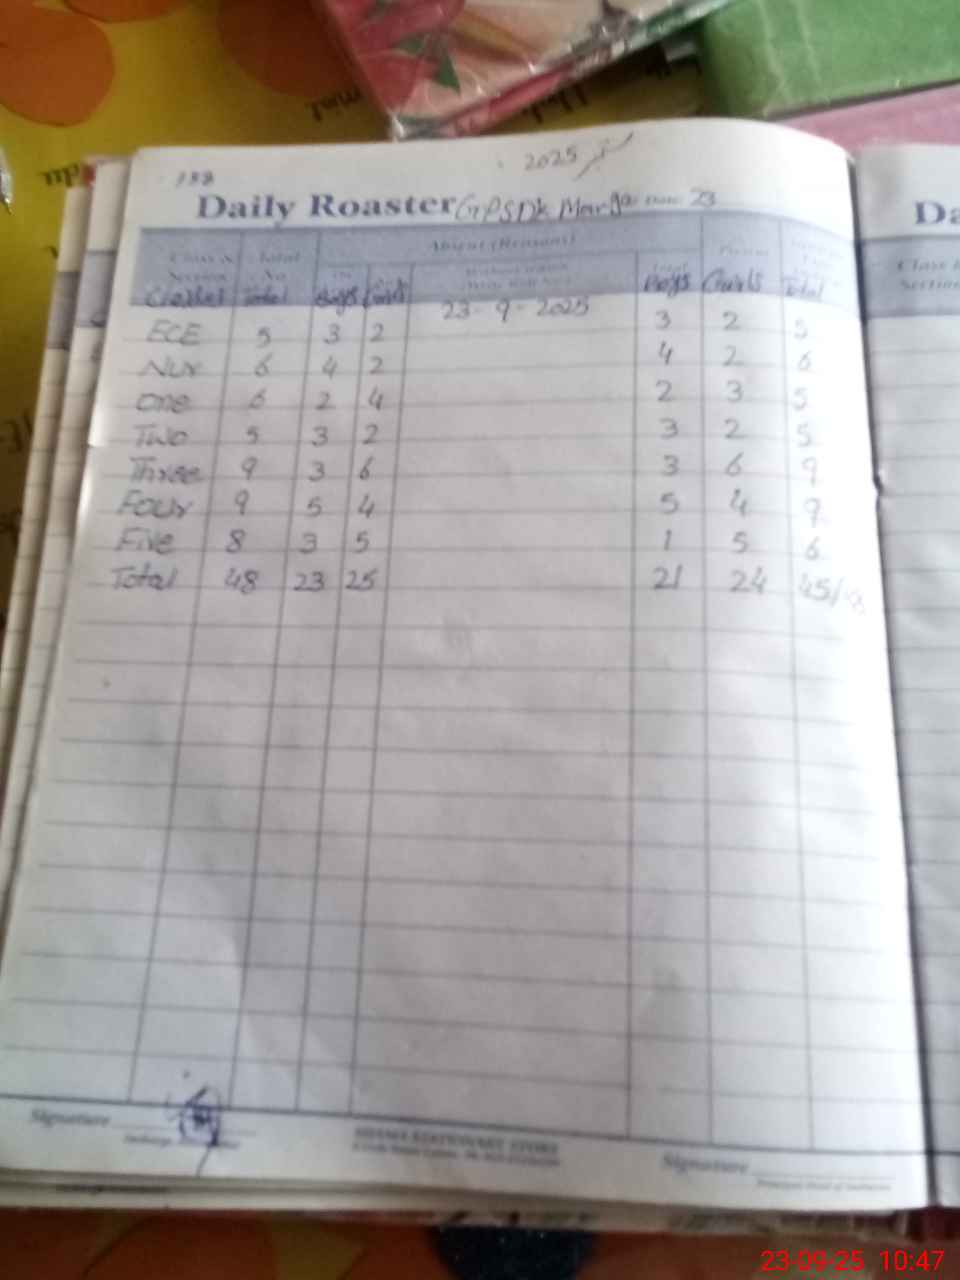 2025
188
Daily Roaster GPSDK Marga Date: 23
Absent (Reason)
Class & Total Present
Section No
Classes Total Boys Girls Boys Girls Total
23-9-2025
ECE 5 3 2 3 2 5
Nur 6 4 2 4 2 6
one 6 2 4 2 3 5
Two 5 3 2 3 2 5
Three 9 3 6 3 6 9
Four 9 5 4 5 4 9
Five 8 3 5 1 5 6
Total 48 23 25 21 24 45/48
Signature
Signature
Da
Class &
Section
23-09-25 10:47